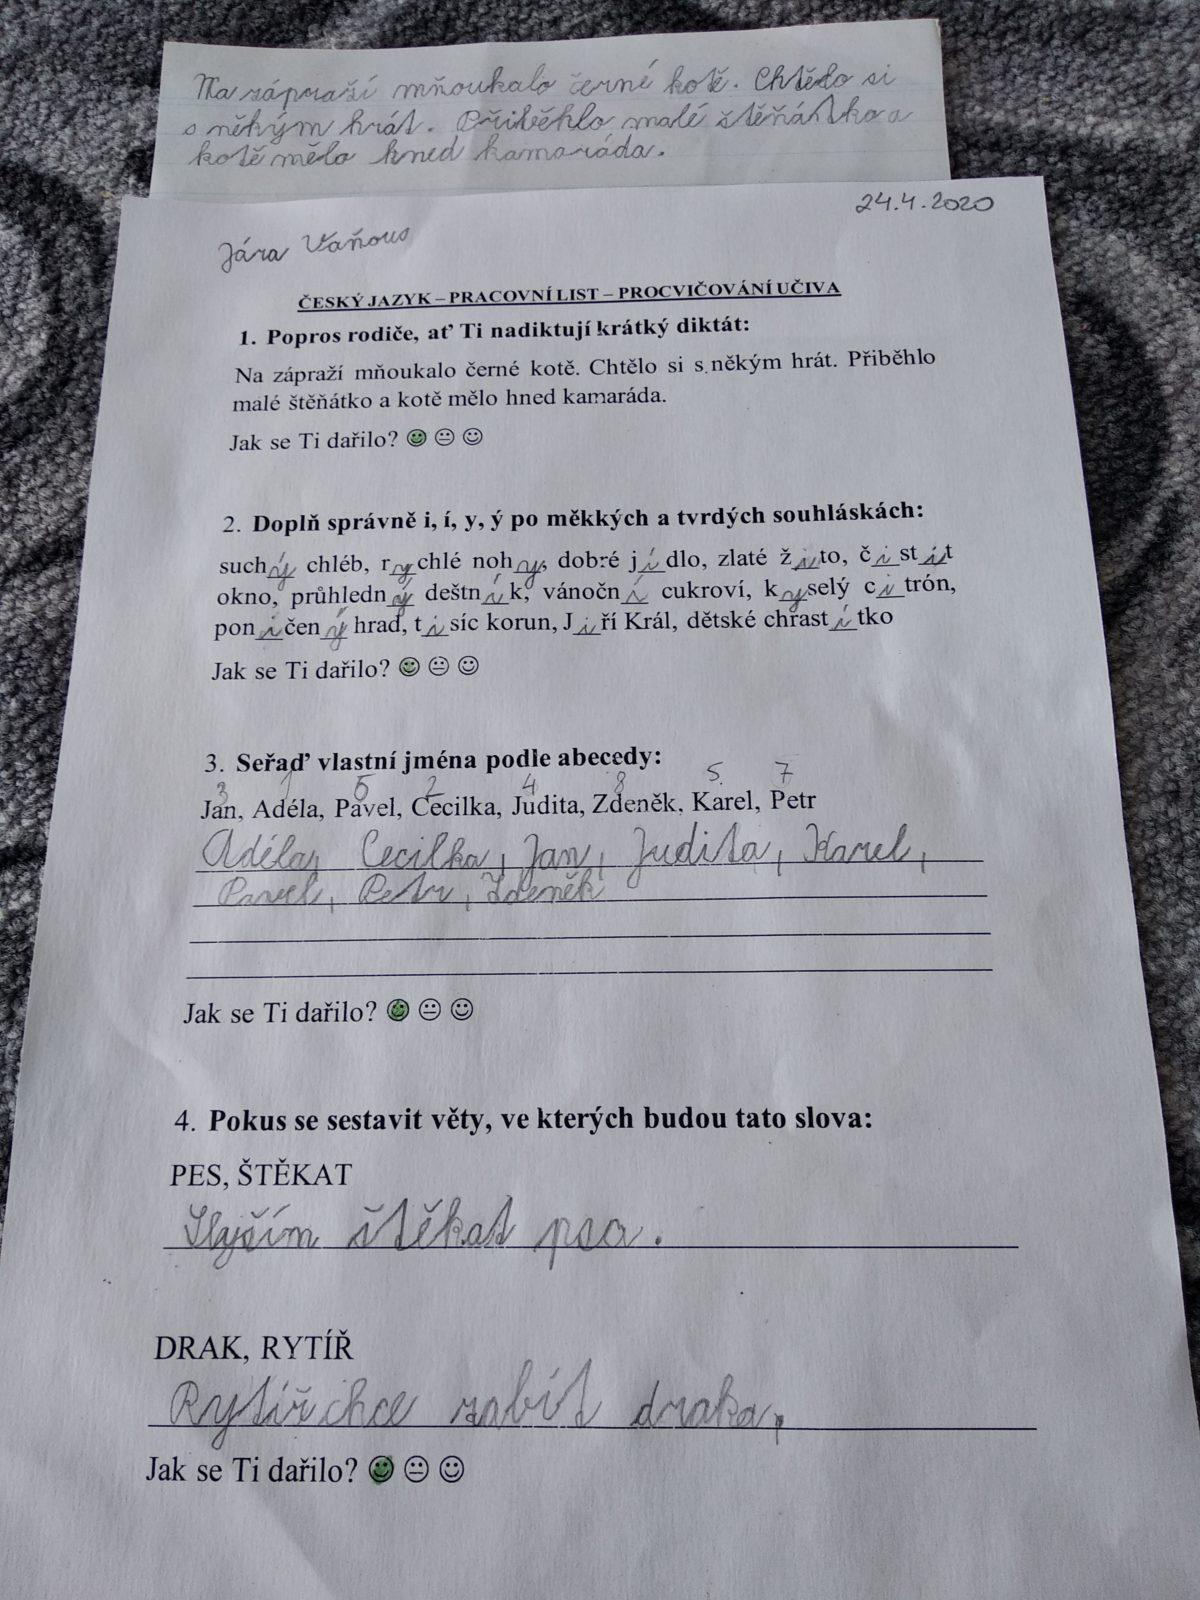 Na zápraží mňoukalo černé kotě. Chtělo si
s někým hrát. Přiběhlo malé štěňátko a
kotě mělo hned kamaráda.
24.4.2020
Jára Vaňous
ČESKÝ JAZYK – PRACOVNÍ LIST – PROCVIČOVÁNÍ UČIVA
1. Popros rodiče, ať Ti nadiktují krátký diktát:
Na zápraží mňoukalo černé kotě. Chtělo si s někým hrát. Přiběhlo
malé štěňátko a kotě mělo hned kamaráda.
Jak se Ti dařilo? ☺ 😐 ☺
2. Doplň správně i, í, y, ý po měkkých a tvrdých souhláskách:
suchý chléb, rychlé nohy, dobré jídlo, zlaté žito, čistit
okno, průhledný deštník, vánoční cukroví, kyselý citrón,
poničený hrad, tisíc korun, Jiří Král, dětské chrastítko
Jak se Ti dařilo? ☺ 😐 ☺
3. Seřaď vlastní jména podle abecedy:
3 1 6 2 4 8 5 7
Jan, Adéla, Pavel, Cecilka, Judita, Zdeněk, Karel, Petr
Adéla, Cecilka, Jan, Judita, Karel,
Pavel, Petr, Zdeněk
Jak se Ti dařilo? ☺ 😐 ☺
4. Pokus se sestavit věty, ve kterých budou tato slova:
PES, ŠTĚKAT
Slyším štěkat psa.
DRAK, RYTÍŘ
Rytíř chce zabít draka.
Jak se Ti dařilo? ☺ 😐 ☺